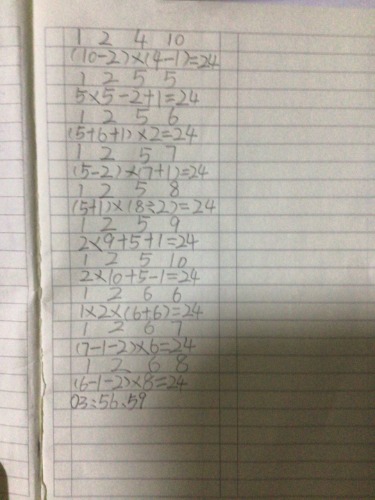 1 2 4 10
(10-2)×(4-1)=24
1 2 5 5
5×5-2+1=24
1 2 5 6
(5+6+1)×2=24
1 2 5 7
(5-2)×(7+1)=24
1 2 5 8
(5+1)×(8÷2)=24
1 2 5 9
2×9+5+1=24
1 2 5 10
2×10+5-1=24
1 2 6 6
1×2×(6+6)=24
1 2 6 7
(7-1-2)×6=24
1 2 6 8
(6-1-2)×8=24
03:56.59